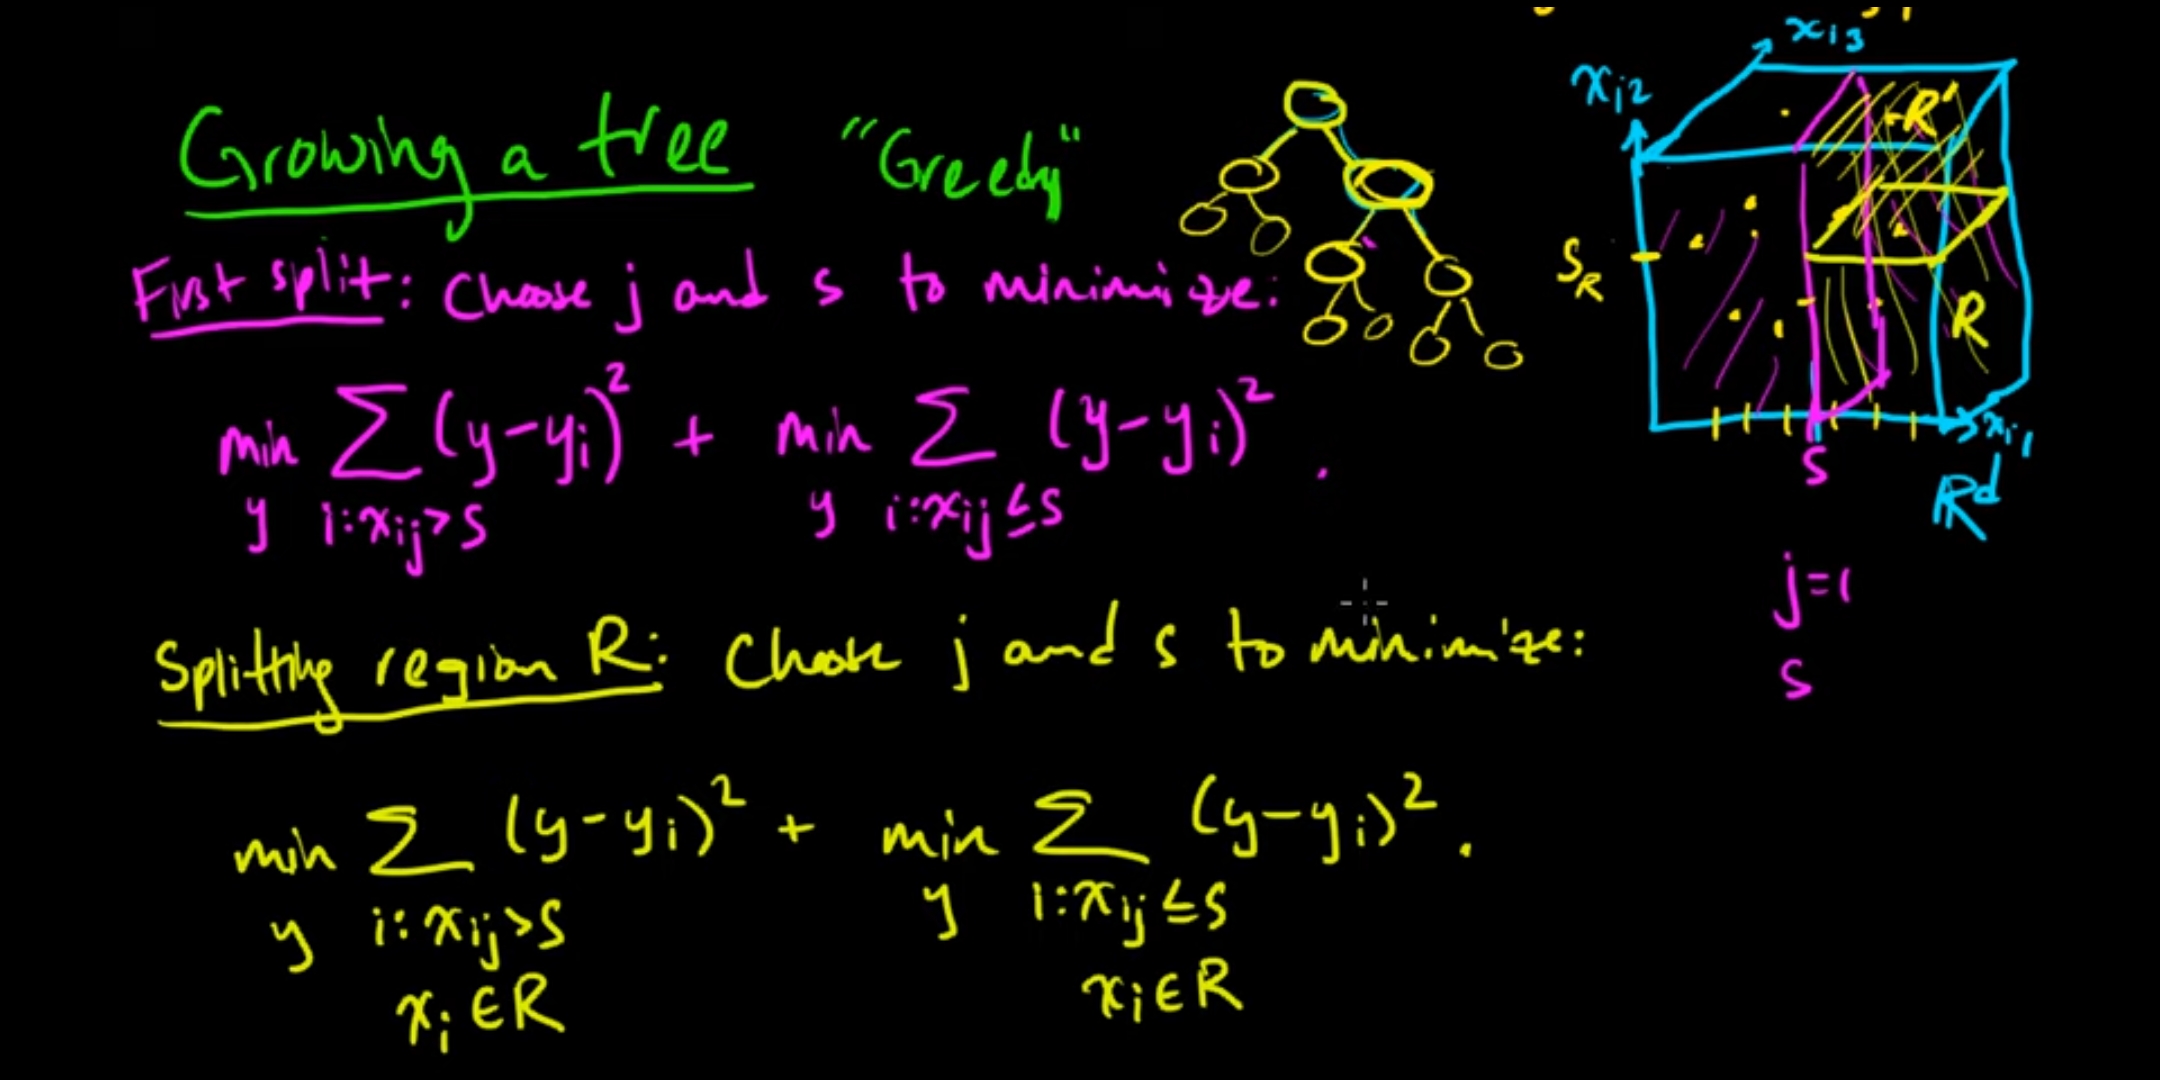 Growing a tree "Greedy"
First split: Choose j and s to minimize:
min Σ (y-yi)² + min Σ (y-yi)².
y i:xij>s y i:xij≤s
Splitting region R: Choose j and s to minimize:
min Σ (y-yi)² + min Σ (y-yi)².
y i:xij>s y i:xij≤s
xi∈R xi∈R
xi3
xi2
R'
SR
R
xi1
s
ℝd
j=1
s